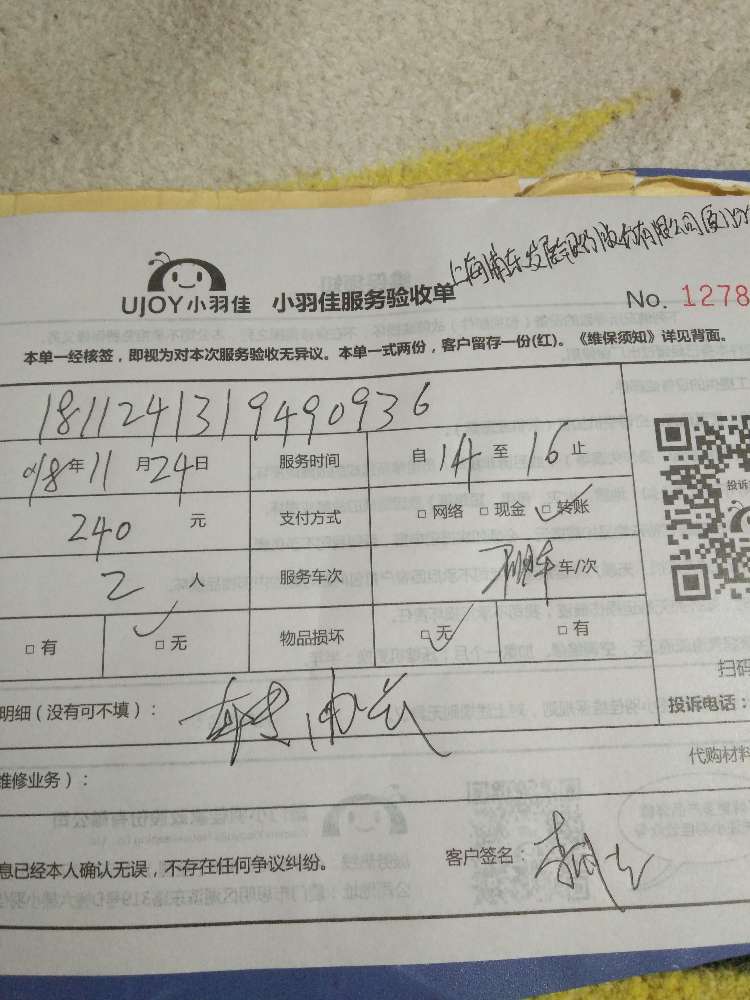 上海浦东发展银行股份有限公司厦门分
UJOY小羽佳 小羽佳服务验收单
No. 1278
本单一经核签，即视为对本次服务验收无异议。本单一式两份，客户留存一份(红)。《维保须知》详见背面。
1811241319490936
18年11月24日 服务时间 自14至16止
240元 支付方式 □ 网络 □ 现金 □ 转账
2人 服务车次 车/次
□ 有 □ 无 物品损坏 □ 无 □ 有
投诉
扫码
明细（没有可不填）：
投诉电话：
代购材料
维修业务）：
息已经本人确认无误，不存在任何争议纠纷。
客户签名：